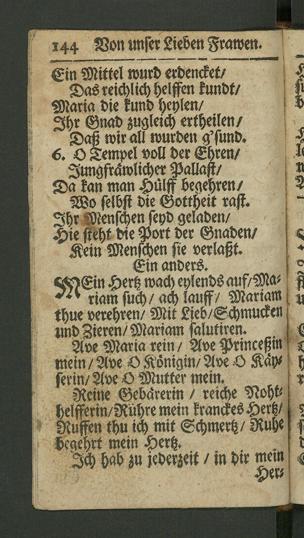 144 Von unser Lieben Frawen.
Ein Mittel wurd erdencket/
Das reichlich helffen kundt/
Maria die kund heylen/
Ihr Gnad zugleich ertheilen/
Daß wir all wurden g'sund.
6. O Tempel voll der Ehren/
Jungfräwlicher Pallast/
Da kan man Hülff begehren/
Wo selbst die Gottheit rast.
Ihr Menschen seyd geladen/
Hie steht die Port der Gnaden/
Kein Menschen sie verlaßt.
Ein anders.
MEin Hertz wach eylends auf/ Ma-
riam such/ ach lauff/ Mariam
thue verehren/ Mit Lieb/ Schmucken
und Zieren/ Mariam salutiren.
Ave Maria rein/ Ave Princeßin
mein/ Ave O Königin/ Ave O Käy-
serin/ Ave O Mutter mein.
Reine Gebärerin/ reiche Noht-
helfferin/ Rühre mein kranckes Hertz/
Ruffen thu ich mit Schmertz/ Ruhe
begehrt mein Hertz.
Ich hab zu jederzeit/ in dir mein
Her-